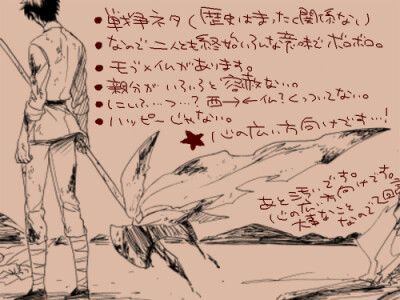 戦争ネタ(歴史はまったく関係ない)
なので二人とも終始いろんな意味でボロボロ。
モブ×仏があります。
親分がいろいろと容赦ない。
にいて…っ…?西→←仏?くっついてない。
ハッピーじゃない。
★心の広い方向けです…!
あと浅いです。
心の広い方向けです。
大事なことなので2回